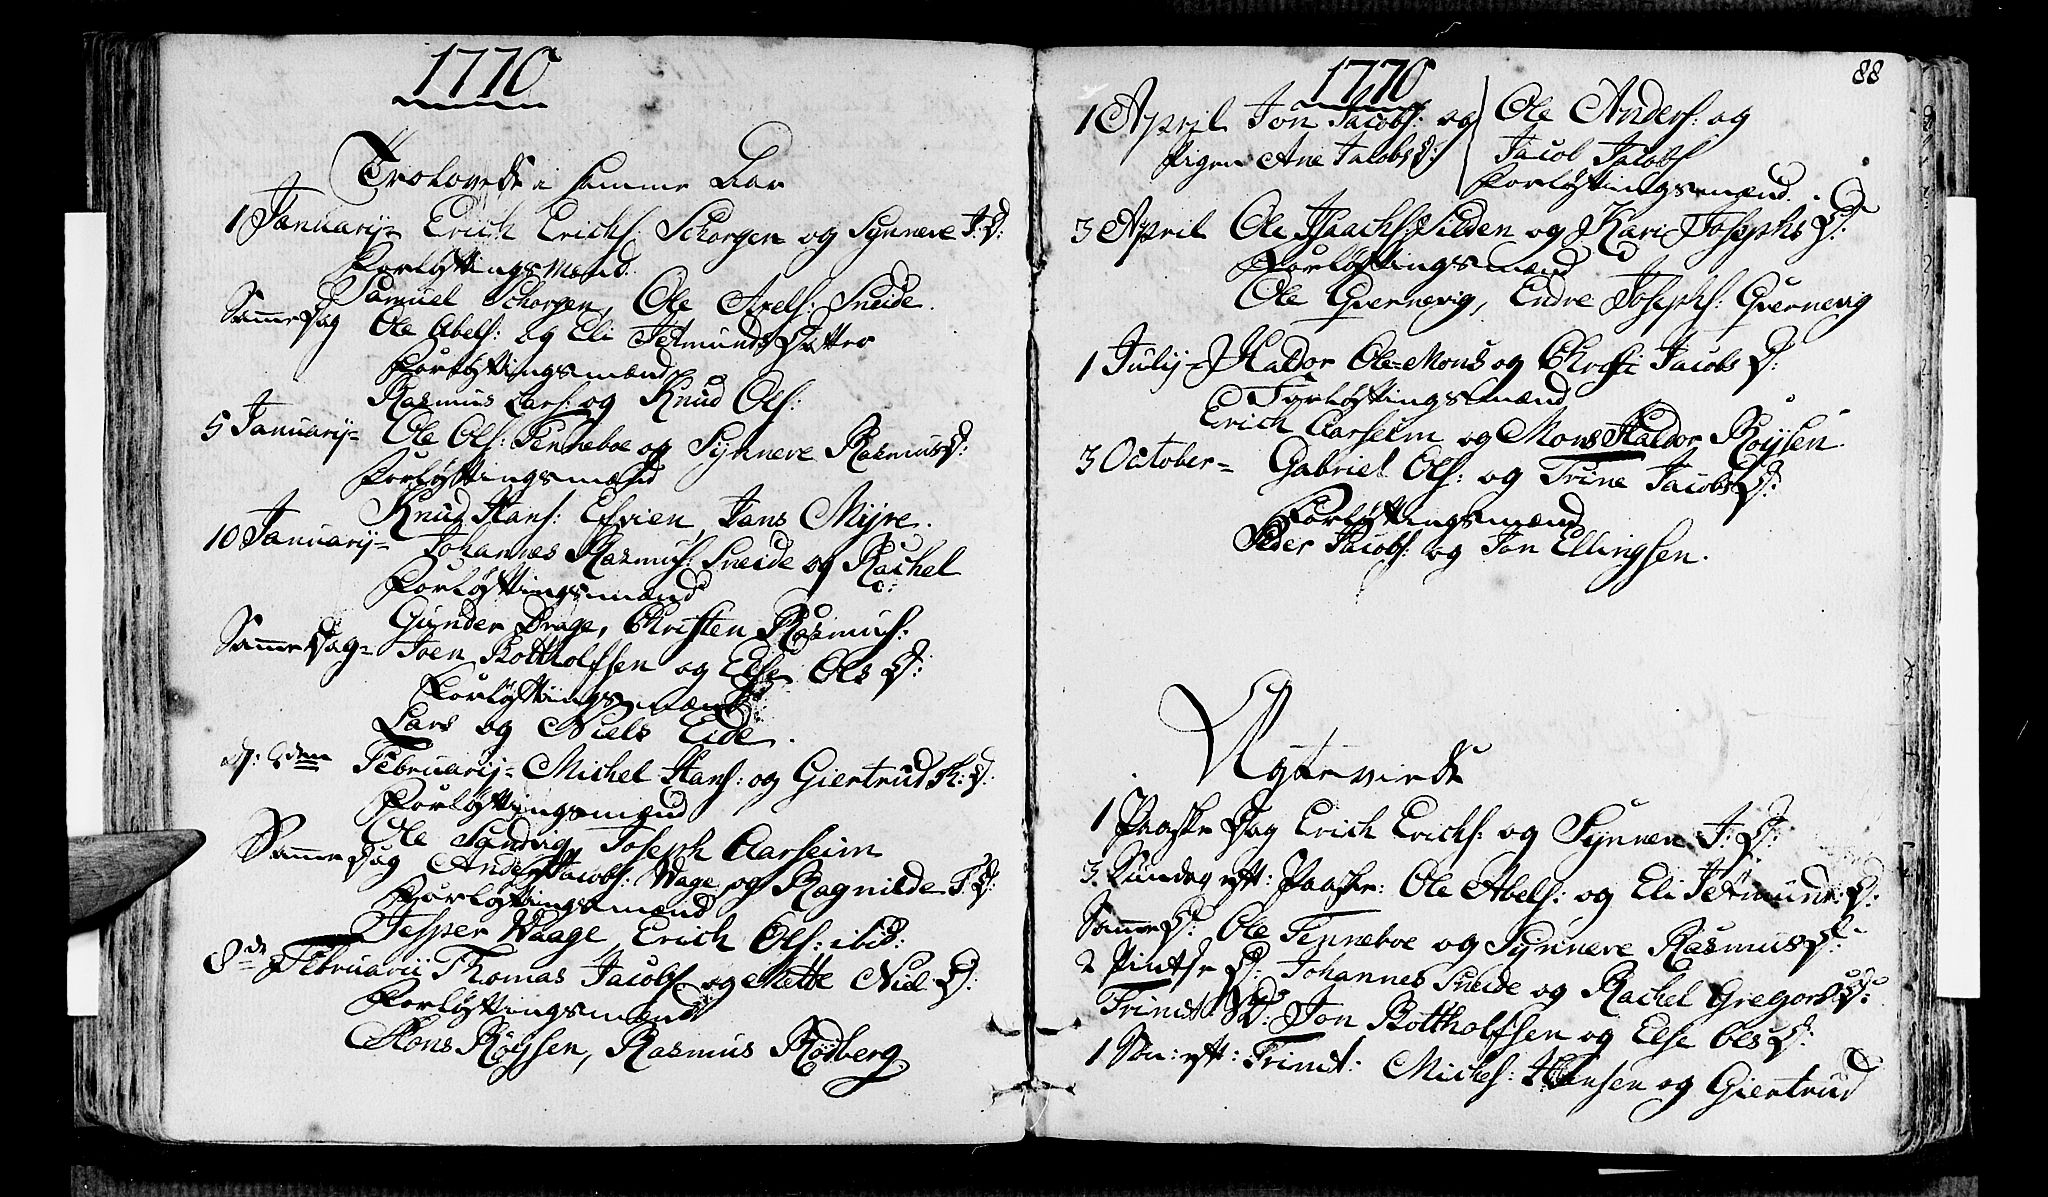 1770
Trolovede i samme Aar
1 Januarij= Erich Erichs: Schorgen og Synneve J: D:
Forløftingsmænd
Samuel Schorgen, Ole Axels: Sneide.
Samme Dag Ole Abels: og Eli Jetmunds Datter
Forløftingsmænd
Rasmus Lars: og Knud Ols:
5 Januarij= Ole Ols: Tenneboe og Synneve RasmusD:
Forløftingsmænd
Knud Hans: Efvien, Jans Myre.
10 Januarij= Johannes Rasmus: Sneide og Rachel G:
Forløftingsmænd
Gunder Drage, Christen Rasmus:
Samme Dag= Joen Bottholfsen og Else Ols D:
Forløftingsmænd
Lars og Niels Eide.
Februarij= Michel Hans: og Giertrud R: D:
Forløftingsmænd
Ole Sandvig, Joseph Aarseim
Samme Dag Anders Jacobs: Wage og Ragnilde T: D:
Forløftingsmænd
Jesper Waage, Erich Ols: ibid:
8de Februarij Thomas Jacobs: og Mette Niels D:
Forløftingsmænd
Mons Røysen, Rasmus Rødberg
1770
88
1 April Jon Jacobs: og
Pigen Ane JacobsD:
Ole Anders: og
Jacob Jacobs
Forløftingsmænd.
3 April Ole Isachs: Silden og Kari Josephs D:
Forløftingsmænd
Ole Qvernevig, Endre Josephs: Qvernevig
1 Julij= Haldor Ole=Mons og Chrosti Jacobs D:
Forløftingsmænd
Erich Aarseim og Mons Haldor Røysen
3 October= Gabriel Ols: og Trine Jacobs D:
Forløftingsmænd
Peder Jacobs: og Jon Ellingsen.
Ægteviede
1 Paaske Dag Erich Erichs: og Synneve J: D:
3. Sundag eft: Paaske: Ole Abels: og Eli Jetmunds: D:
Samme D: Ole Tenneboe og Synneve Rasmus D:
2 Pintse D: Johannes Sneide og Rachel Gregors D:
Trinit: SD: Jon Bottholfsen og Else Ols D:
1 Søn: eft: Trinit: Michel: Hansen og Giertrud